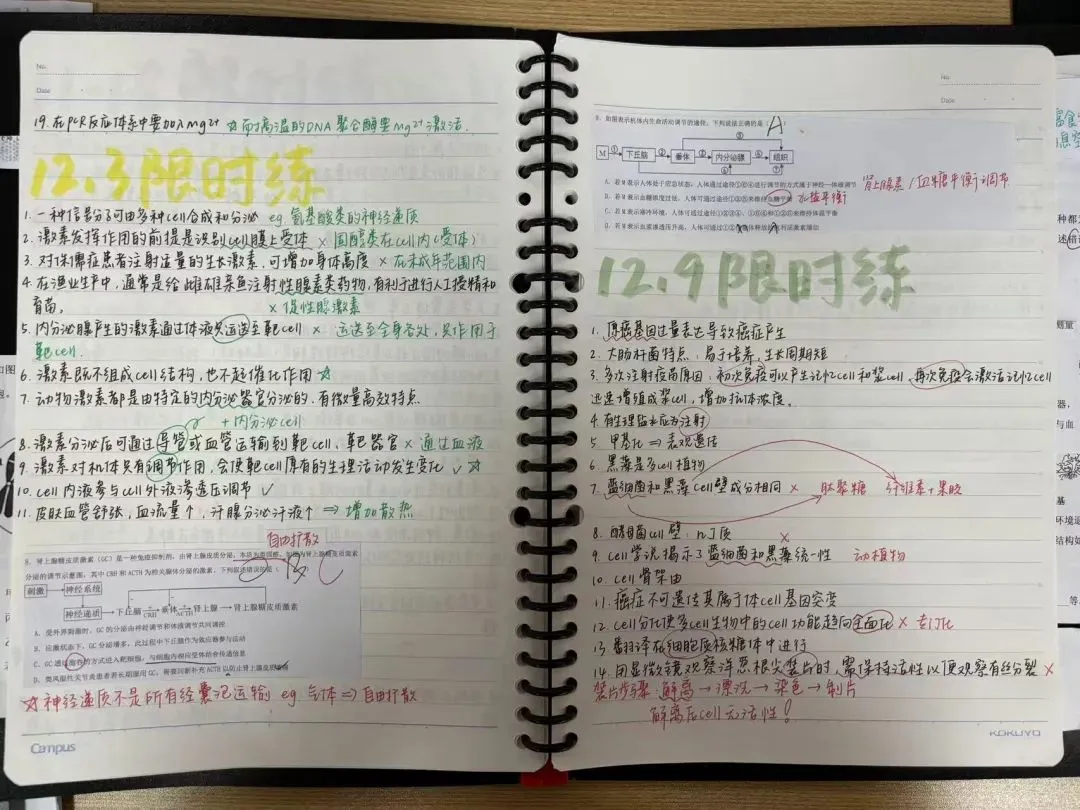 No.
Date
19. 在PCR反应体系中要加入Mg2+ ☆而耐高温的DNA聚合酶要Mg2+激活.
12.3限时练
1. 一种信号分子可由多种cell合成和分泌 eg.氨基酸类的神经递质
2. 激素发挥作用的前提是识别cell膜上受体 × 固醇类在cell内(受体)
3. 对侏儒症患者注射适量的生长激素,可增加身体高度 × 在未成年范围内
4. 在渔业生产中,通常是给雌雄亲鱼注射性腺素类药物,有利于进行人工授精和
育苗。 × 促性腺激素
5. 内分泌腺产生的激素通过体液只运送至靶cell × 运送至全身各处,只作用于
靶cell.
6. 激素既不组成cell结构,也不起催化作用 ☆
7. 动物激素都是由特定的内分泌器官分泌的,有微量高效特点
+内分泌cell
8. 激素分泌后可通过导管或血管运输到靶cell、靶器官 × 通过血液
9. 激素对机体只有调节作用,会使靶cell原有的生理活动发生变化 ✓ ☆
10. cell内液参与cell外液渗透压调节 ✓
11. 皮肤血管舒张,血流量↑,汗腺分泌汗液↑ ⇒ 增加散热
自由扩散
8. 肾上腺糖皮质激素(GC)是一种免疫抑制剂,由肾上腺皮质分泌,本质为类固醇。如图为肾上腺糖皮质激素
分泌的调节示意图,其中CRH和ACTH为相关腺体分泌的激素。下列叙述错误的是( B C
刺激→神经系统
神经递质→下丘脑 CRH 垂体 ACTH 肾上腺→肾上腺糖皮质激素
A. 受外界刺激时,GC的分泌由神经调节和体液调节共同调控
B. 应激状态下,GC分泌增多,此过程中下丘脑作为效应器参与运动
C. GC通过胞吞的方式进入靶细胞,与细胞内相应受体结合传递信息
D. 类风湿性关节炎患者若长期服用GC,需要间断补充ACTH以防止肾上腺皮质萎缩
☆神经递质不是所有经囊泡运输 eg 气体⇒自由扩散
Campus
No.
Date
9. 如图表示机体内生命活动调节的途径。下列说法正确的是( A
③
M ① 下丘脑 ② 垂体 ③ 内分泌腺 ④ 组织
⑥ ⑦
A. 若M表示人体处于应急状态,人体通过途径①⑥④进行调节的方式属于神经—体液调节 肾上腺素/血糖平衡调节
B. 若M表示血糖浓度过低,人体可通过途径①②③来维持血糖平衡 水盐平衡
12.9限时练
1. 原癌基因过量表达导致癌症产生
2. 大肠杆菌特点:易于培养,生长周期短
3. 多次注射疫苗原因:初次免疫可以产生记忆cell和浆cell,再次免疫会激活记忆cell
迅速增组成浆cell,增加抗体浓度。
4. 有生理盐水应为注射
5. 甲基化⇒表观遗传
6. 黑藻是多cell植物
7. 蓝细菌和黑藻cell壁成分相同 × 肽聚糖 纤维素+果胶
8. 酵母菌cell壁:几丁质 ×
9. cell学说揭示了蓝细菌和黑藻统一性 动植物
10. cell骨架由
11. 癌症不可遗传其属于体cell基因突变
12. cell分化使多cell生物中的cell功能趋向全面化 × 专门化
13. 翻译在细胞质核糖体中进行
14. 用显微镜观察洋葱根尖装片时,需保持活性以便观察有丝分裂 ×
装片步骤:解离→漂洗→染色→制片
解离后cell无活性!
KOKUYO